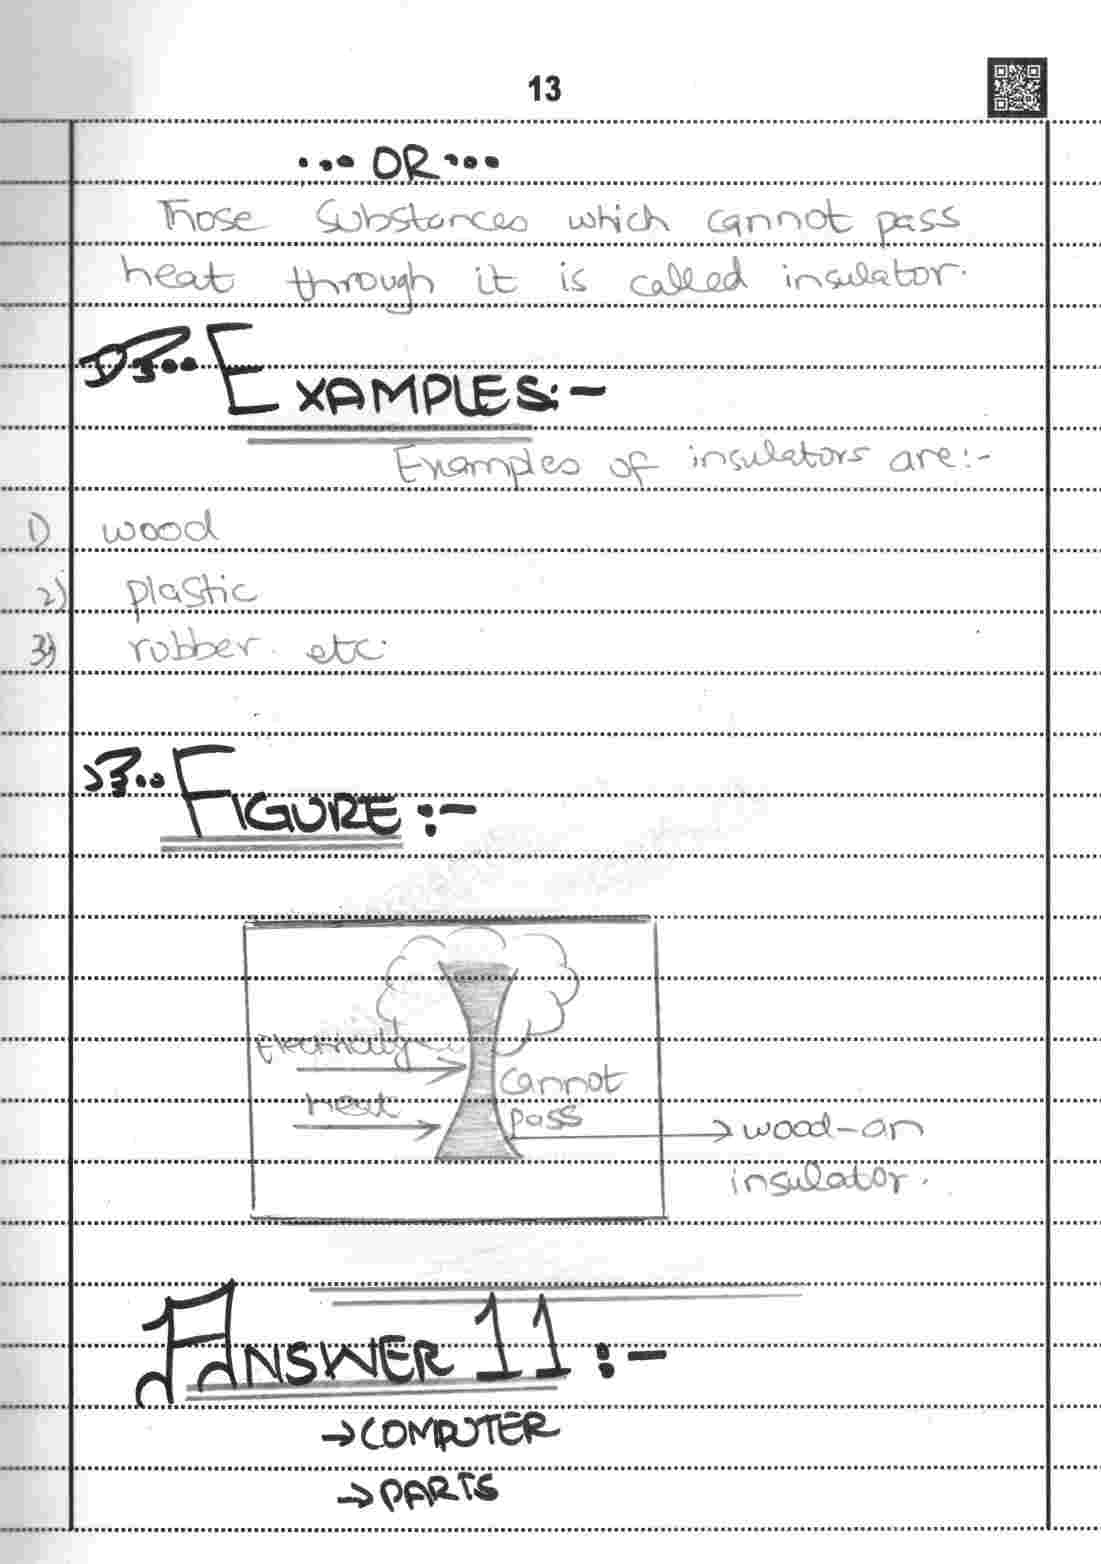 13
... OR ...
Those Substances which cannot pass
heat through it is called insulator.
EXAMPLES:-
Examples of insulators are:-
1) wood
2) plastic
3) rubber. etc.
FIGURE:-
Electricity
cannot
heat
pass
wood-an
insulator.
ANSWER 11:-
→COMPUTER
→PARTS